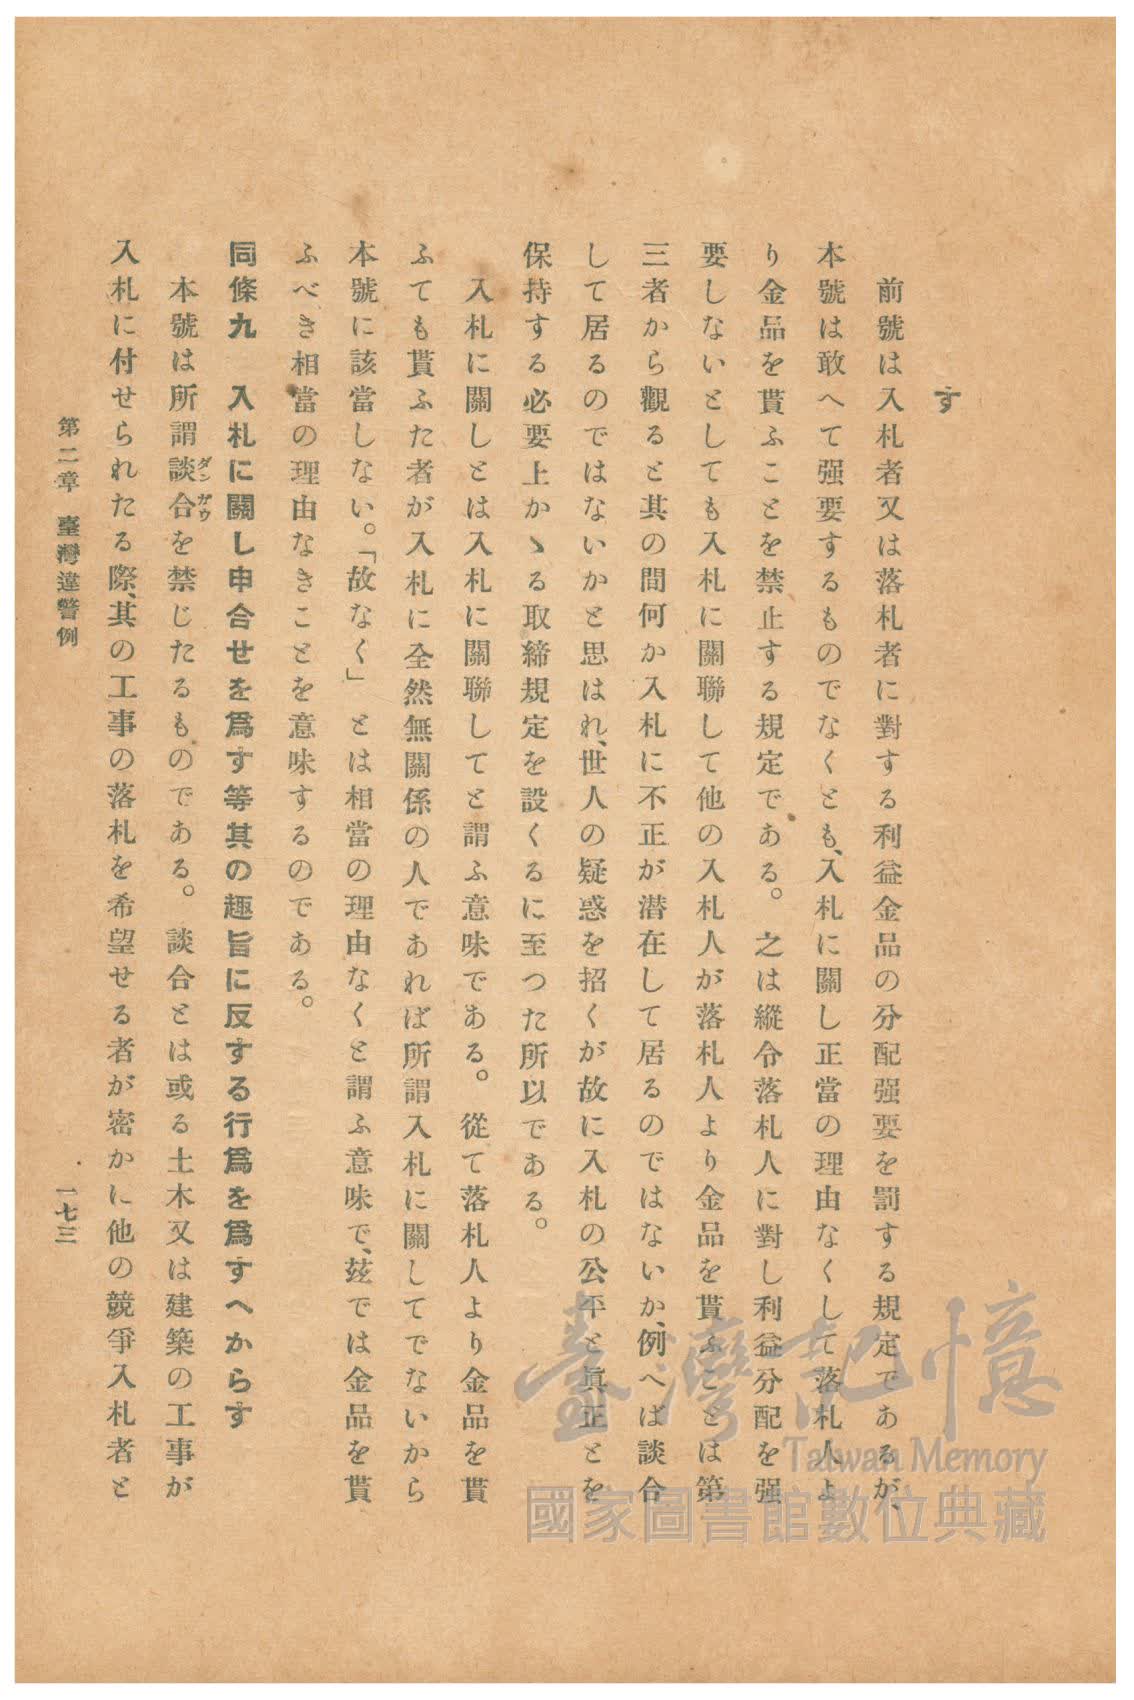 す
前號は入札者又は落札者に對する利益金品の分配强要を罰する規定であるが、
本號は敢へて强要するものでなくとも、入札に關し正當の理由なくして落札人よ
り金品を貰ふことを禁止する規定である。之は縱令落札人に對し利益分配を强
要しないとしても入札に關聯して他の入札人が落札人より金品を貰ふことは第
三者から觀ると其の間何か入札に不正が潜在して居るのではないか、例へば談合
して居るのではないかと思はれ、世人の疑惑を招くが故に入札の公平と眞正とを
保持する必要上かゝる取締規定を設くるに至つた所以である。
入札に關しとは入札に關聯してと謂ふ意味である。從て落札人より金品を貰
ふても貰ふた者が入札に全然無關係の人であれば所謂入札に關してでないから
本號に該當しない。「故なく」とは相當の理由なくと謂ふ意味で、玆では金品を貰
ふべき相當の理由なきことを意味するのである。
同條九 入札に關し申合せを爲す等其の趣旨に反する行爲を爲すへからす
本號は所謂談合ダンガウを禁じたるものである。談合とは或る土木又は建築の工事が
入札に付せられたる際、其の工事の落札を希望せる者が密かに他の競爭入札者と
第二章 臺灣違警例
一七三
臺灣記憶
Taiwan Memory
國家圖書館數位典藏